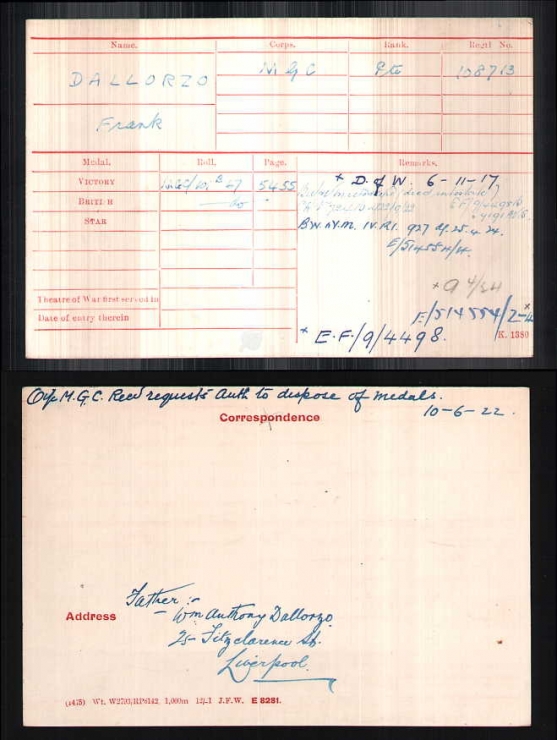 Name. Corps. Rank. Regtl No.
DALLORZO M G C Pte 108713
Frank
Medal. Roll. Page. Remarks.
VICTORY B 27 5455 + D. of W. 6-11-17
BRITISH do "
STAR
B.W. & V.M. IV. R.I. 927 d/ 25.4.24.
Theatre of War first served in
Date of entry therein
+ E.F./9/4498. K. 1380
O i/c M.G.C. Recd requests auth to dispose of medals.
10-6-22.
Correspondence
Father :-
Address Wm Anthony Dallorzo
25 Fitzclarence St.
Liverpool.
1,000m J.F.W. E 8281.